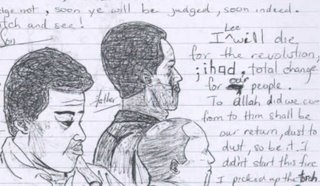 dge not, soon ye will be judged, soon indeed.
tch and see!
Lee
I will die
for the revolution,
jihad, total change
for our people.
To allah did we
to Him shall be
our return, dust to
dust, so be it. I
didnt start this fire
I picked up the torch.